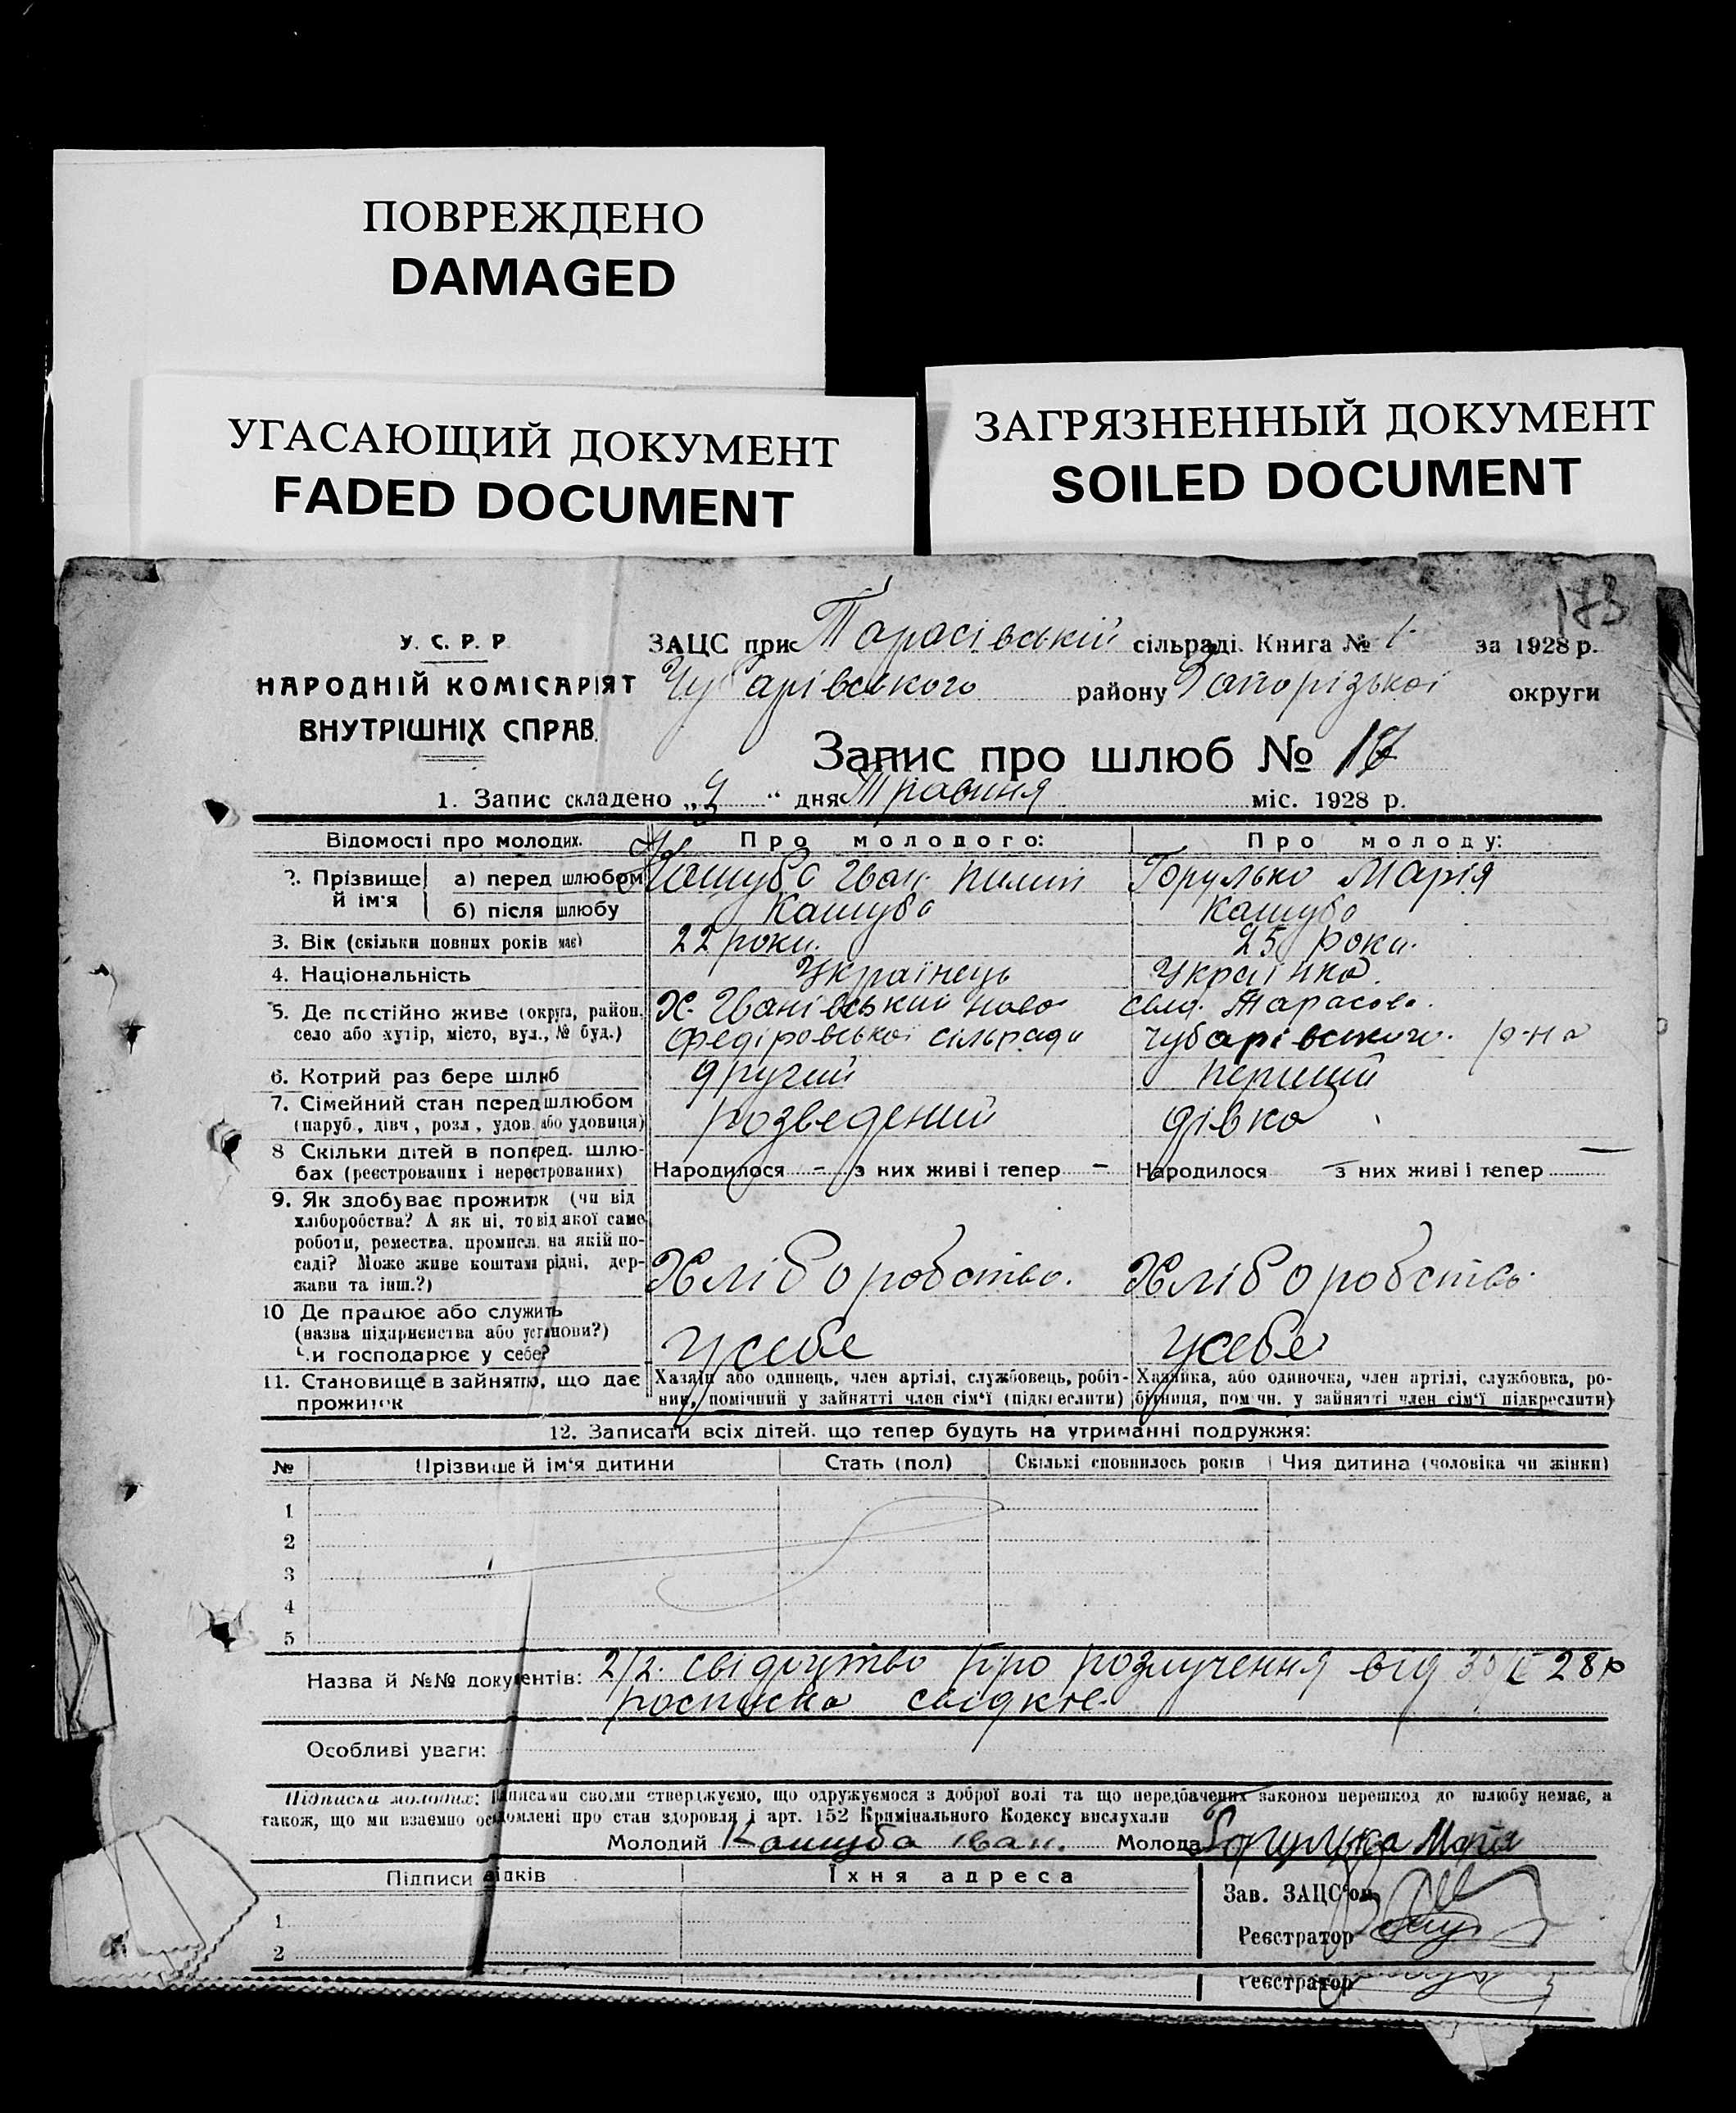 ПОВРЕЖДЕНО
DAMAGED
УГАСАЮЩИЙ ДОКУМЕНТ
FADED DOCUMENT
ЗАГРЯЗНЕННЫЙ ДОКУМЕНТ
SOILED DOCUMENT
У. С. Р. Р.
НАРОДНІЙ КОМІСАРІЯТ
ВНУТРІШНІХ СПРАВ.
ЗАЦС при Тарасівській сільраді. Книга № 1. за 1928 р.
Чубарівського району Запорізької округи
Запис про шлюб №
1. Запис складено „ “ дня Травня міс. 1928 р.
Відомості про молодих. Про молодого: Про молоду:
2. Прізвище й ім'я а) перед шлюбом Кашуба Іван Горулько Марія
б) після шлюбу Кашуба Кашуба
3. Вік (скільки повних років має) 22 роки. 25 роки.
4. Національність Українець Українка.
5. Де постійно живе (округа, район, Х. Іванівський Ново село. Тарасовка.
село або хутір, місто, вул., № буд.) Федіровської сільради Чубарівського. р-на
6. Котрий раз бере шлюб другий перший
7. Сімейний стан перед шлюбом
(паруб., дівч., розл., удов. або удовиця) розведений дівка
8 Скільки дітей в поперед. шлю-
бах (реєстрованих і нереєстрованих) Народилося - з них живі і тепер - Народилося - з них живі і тепер —
9. Як здобуває прожиток (чи від
хліборобства? А як ні, то від якої саме
роботи, ремества, промисл. на якій по-
саді? Може живе коштам рідні, дер-
жави та інш.?) Хліборобство. Хліборобство.
10 Де працює або служить
(назва підприємства або установи?)
Чи господарює у себе? Усебе Усебе
11. Становище в зайнятю, що дає Хазяїн або одинець, член артілі, службовець, робіт- Хазяйка, або одиночка, член артілі, службовка, ро-
прожиток ник, помічний у зайнятті член сім'ї (підкреслити) бітниця, помічн. у зайнятті член сім'ї підкреслити)
12. Записати всіх дітей. що тепер будуть на утриманні подружжя:
№ Прізвище й ім'я дитини Стать (пол) Скількі сповнилось років Чия дитина (чоловіка чи жінки)
1
2
3
4
5
Назва й №№ документів: свідоцтво про розлучення від 28 р
росписка
Особливі уваги:
Підписка молодих: Підписами своїми стверджуємо, що одружуємося з доброї волі та що передбачених законом перешкод до шлюбу немає, а
також, що ми взаємно освідомлені про стан здоровля і арт. 152 Кримінального Кодексу вислухали
Молодий Кашуба Іван. Молода Марія
Підписи свідків Їхня адреса
Зав. ЗАЦС'ом
1
Реєстратор
2
Реєстратор